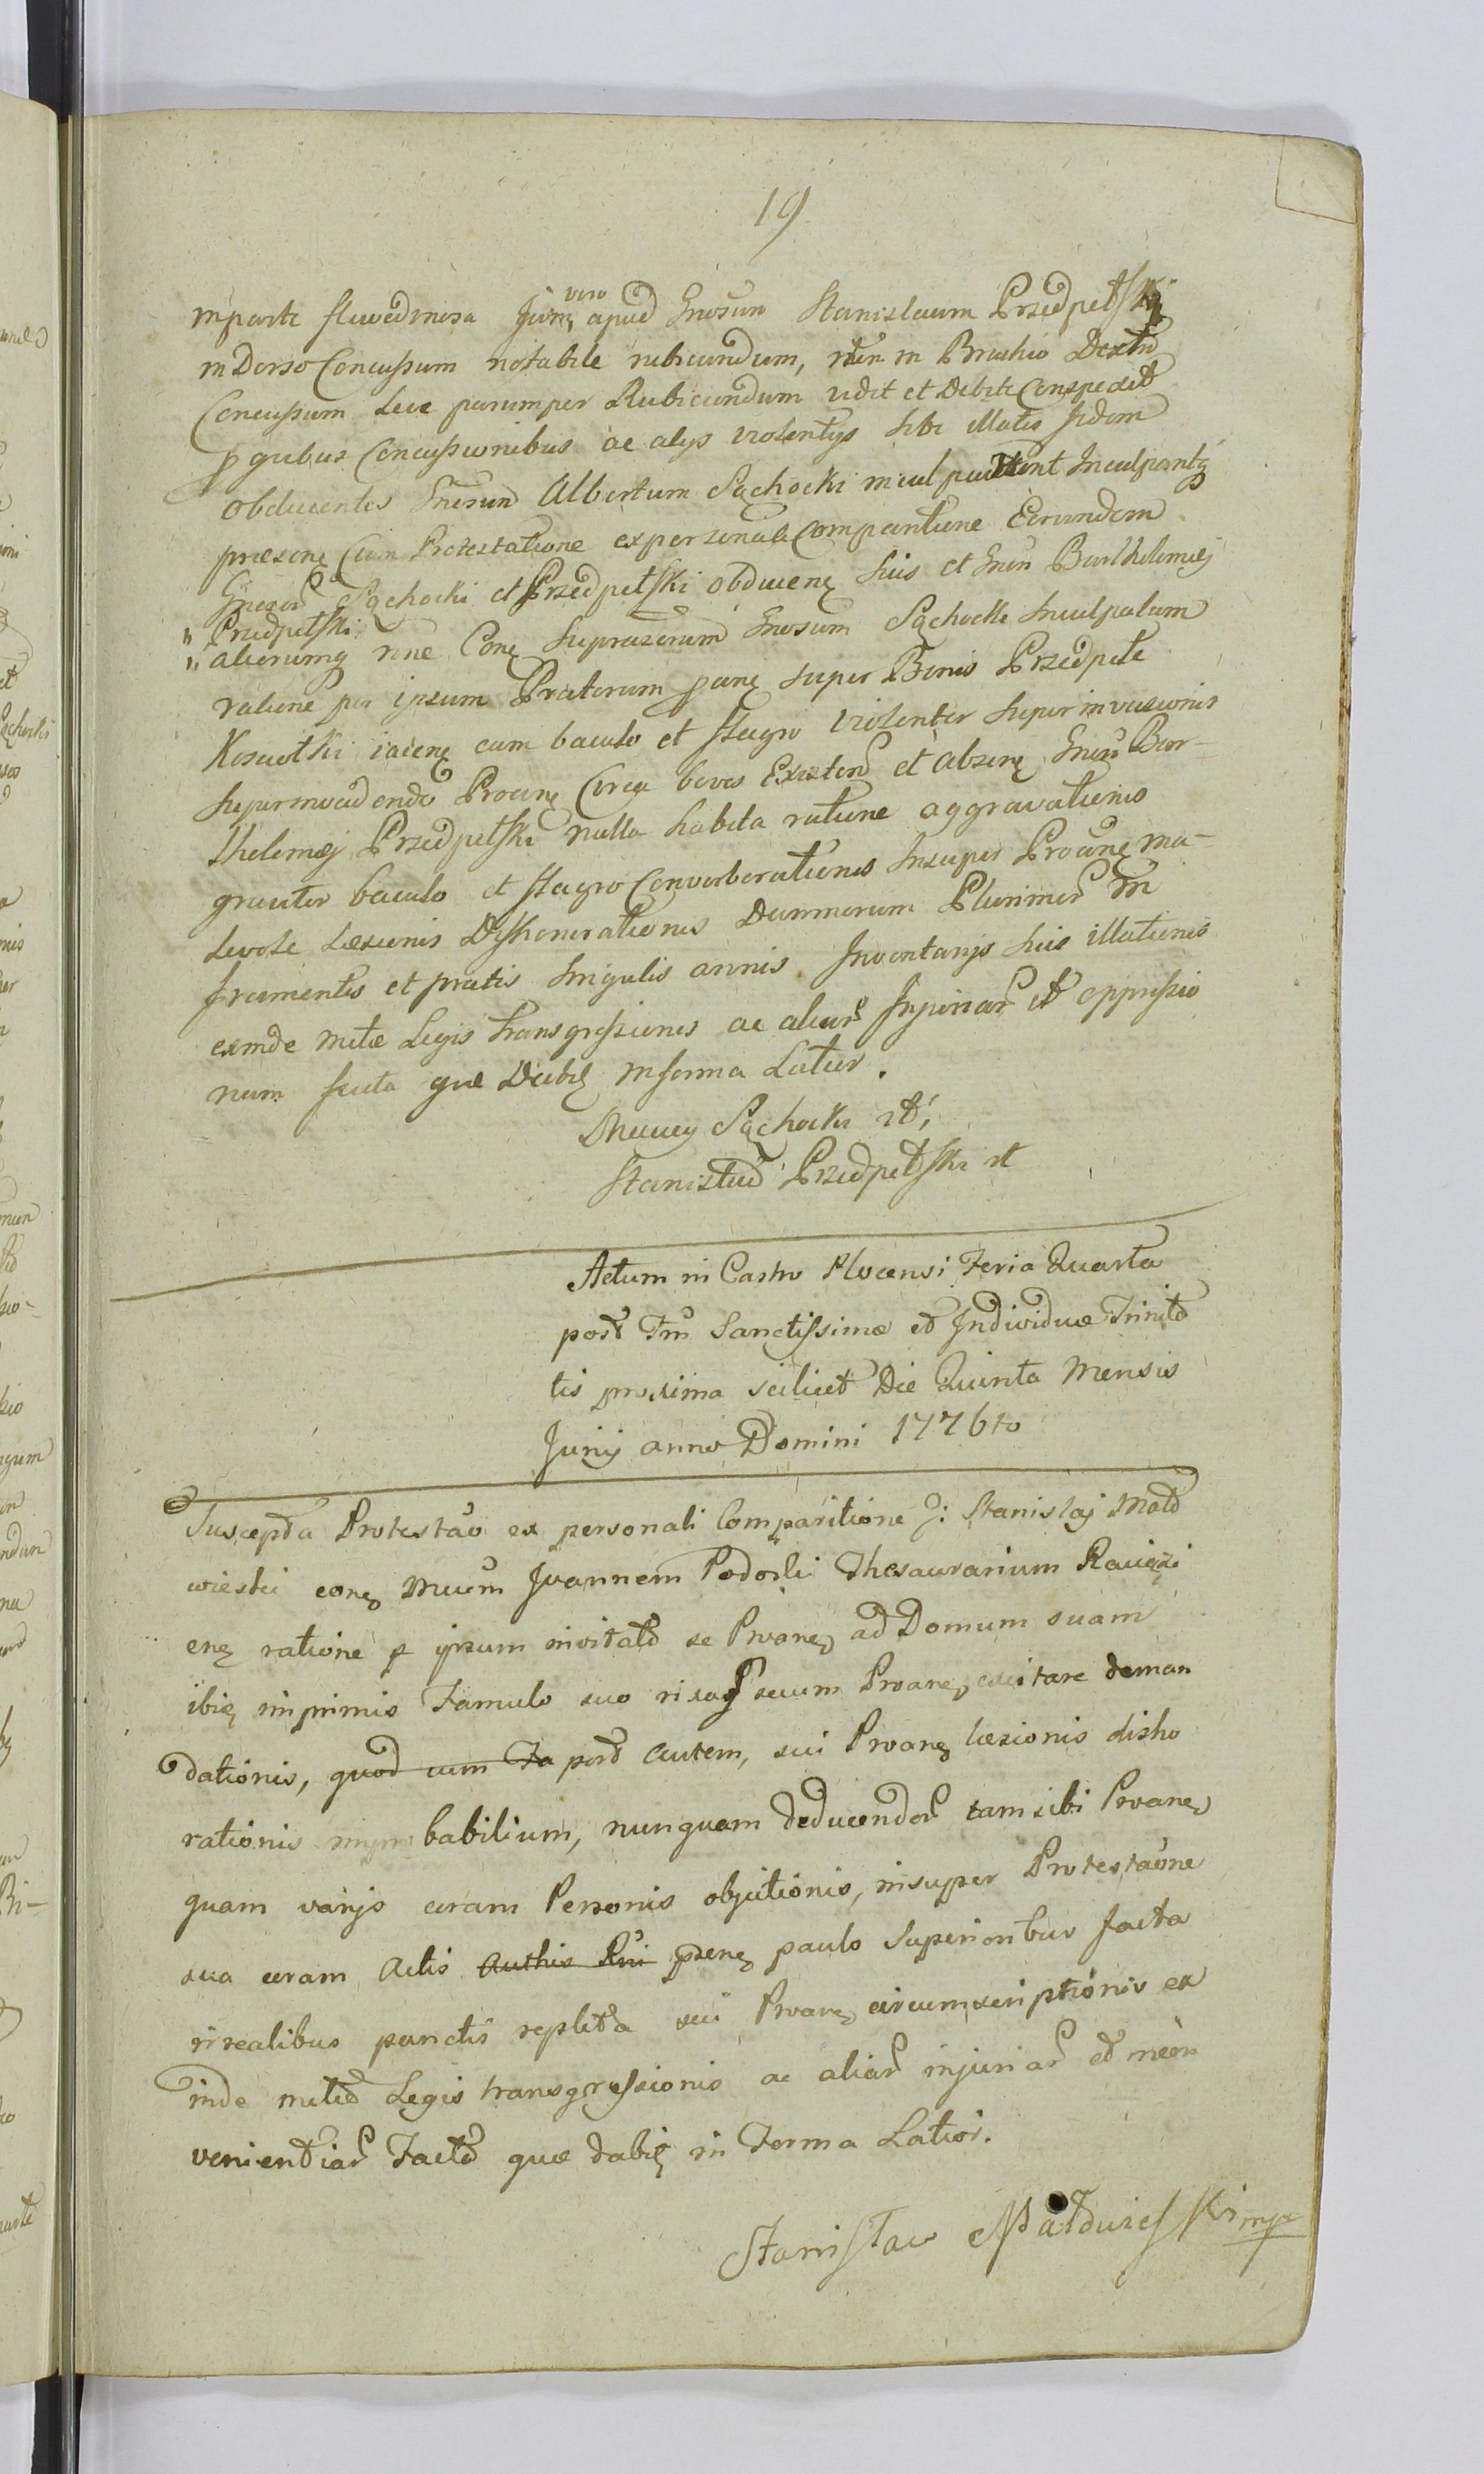 19
in parte fluvedinosa vero apud Gnosum Stanislaum Przedpełski
in Dorso Concussum notabile rubicundum, item in Brachio Dextro
Concussum Leve parumper Rubicundum vidit et Debite Conspexit
p quibus Concussionibus ac alys violentys sibi illatis sidem
obducentes Gnosum Albertum Sąchocki inculpant Inculpantq
praesens Cum Protestatione ex personali Comparitione Eorundem
Gnosor Sąchocki et Przedpełski obducen suis et Gnsi Barthelomej
„ Przedpełski
„ aliorumq nne Con Suprascrum Gnosum Sąchocki Inculpatum
ratione per ipsum Pratorum super Bonis Przedpełe
Kosiorki iacen cum baculo et flagro violenter superinvasionis
superinvadendo Proan Circa boves Existen et absen Gnsi Bar-
thelomej Przedpełski nulla habita ratione aggravationis
graviter baculo et flagro Converberationis Insuper Proan ma-
levole Laesionis Dishonorationis Damnorum Plurimor in
frumentis et pratis singulis annis Inventarijs suis illationis
exinde metae Legis transgressionis ac aliar Injuriar et oppressio
num facta que Dabit in forma Latior.
Sąchocki
Stanisław Przedpełski
Actum in Castro Plocensi Feria Quarta
post Fm Sanctissimae et Individuae Trinita
tis proxima scilicet Die Quinta Mensis
Junij anno Domini 1776to
Suscepta Protestao ex personali Comparitione G: Stanislaj Małd
wieski con Mcum Joannem Podoski Thesaurarium Racięzi
en ratione p ipsum invitato se Proan ad Domum suam
ibiq inprimis Famulo suo secum Proan excitare deman
dationis, quod cum Fa post autem, sui Proan laesionis disho
rationis babilium, nunquam deducendor tam sibi Proan
quam varijs coram Personis objectionis, insuper Protestaone
sua coram Actis Authis Rni psen paulo Superioribus facta
irrealibus punctis repleta sui Proan circumscriptionis ex
inde metae Legis transgressionis ac aliar injuriar et incon
venientiar Facto quae dabit in Forma Latior.
Stanisław Małdwieski mp